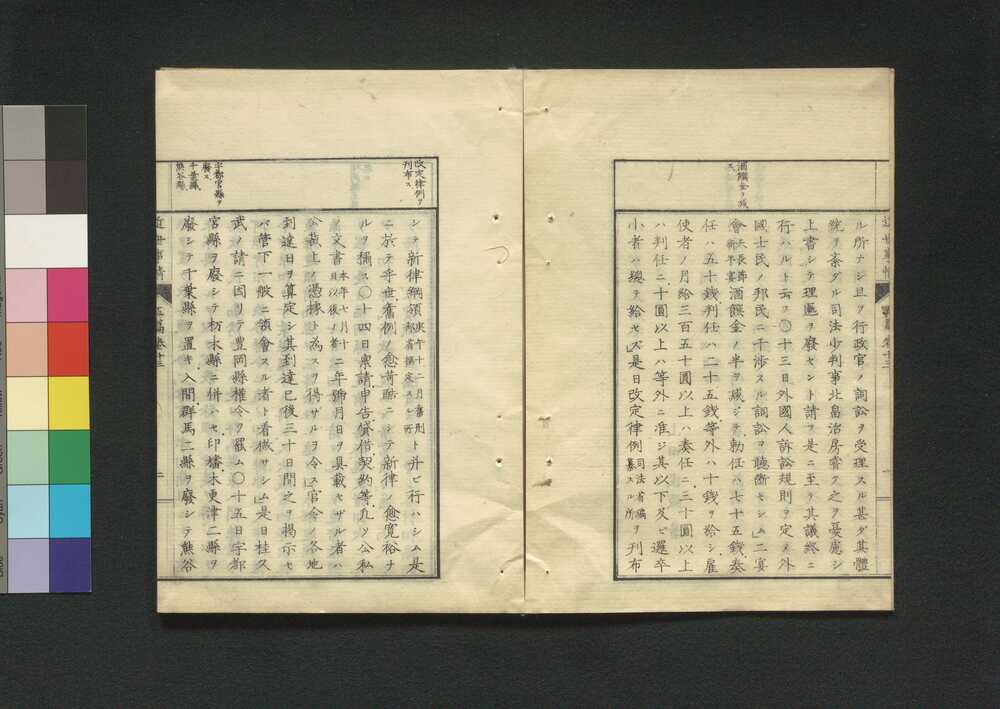 酒饌金ヲ減
ス
ル所ナシ且ツ行政官ノ詞訟ヲ受理スル甚ダ其體
統ヲ紊ダル司法少判事北畠治房齋ク之ヲ憂慮シ
上書シテ理區ヲ廢セント請フ是ニ至テ其議終ニ
行ハルト云フ〇十三日外國人訴訟規則ヲ定メ外
國士民ノ邦民ニ干渉スル詞訟ヲ聽斷セシム」二宴
會天長節新年宴酒饌金ノ半ヲ減ジテ勅任ハ七十五錢奏
任ハ五十錢判任ハ二十五錢等外ハ十錢ヲ給シ雇
使者ノ月給三百五十圓以上ハ奏任ニ三十圓以上
ハ判任ニ十圓以上ハ等外ニ准ジ其以下及ビ邏卒
小者ハ總テ給セズ」是日改定律例司法省編纂スル所ヲ刊布
改定律例ヲ
刊布ス
宇都宮縣ヲ
廢ス
千葉縣
熊谷縣
シテ新律綱領庚午十二月舊刑部省撰定スル所ト并ビ行ハシム是
ニ於テ乎世舊例ノ愈苛酷ニシテ新律ノ愈寛裕ナ
ルヲ稱ス〇十四日衆請申告貸借契約等凡ソ公私
ノ文書本年七月十日以後ノ者ニ年號月日ヲ具載セザル者ハ
公裁上ノ憑據ト為スヲ得サルヲ令ス」官令ノ各地
到達日ヲ算定シ其到達已後三十日間之ヲ掲示セ
バ管下一般ニ領會スル者ト看做サシム」是日桂久
武ノ請ニ因リテ豊岡縣權令ヲ罷ム〇十五日宇都
宮縣ヲ廢シテ栃木縣ニ併ハセ印旛木更津二縣ヲ
廢シテ千葉縣ヲ置キ入間群馬二縣ヲ廢シテ熊谷